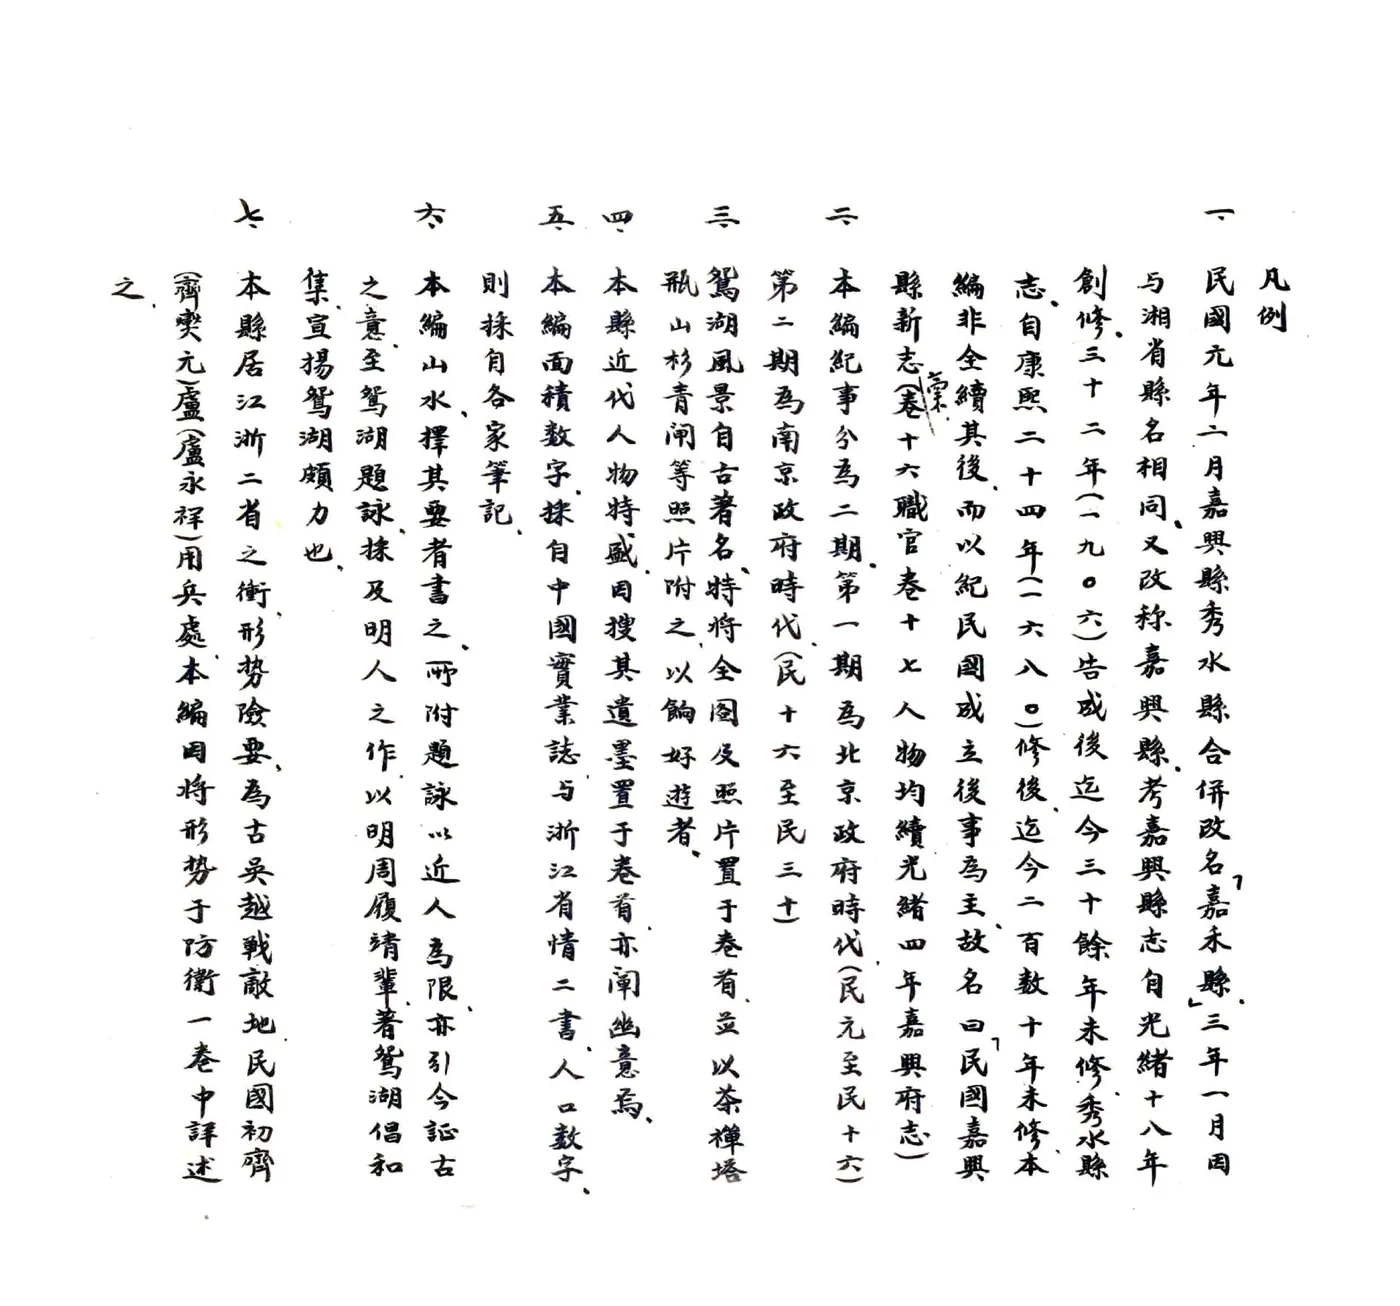 凡例
一、民國元年二月嘉興縣秀水縣合併改名「嘉禾縣」、三年一月因
与湘省縣名相同、又改称嘉興縣、考嘉興縣志自光緒十八年
創修、三十二年(一九〇六)告成後迄今三十餘年未修、秀水縣
志、自康熙二十四年(一六八〇)修後、迄今二百数十年未修、本
編非全續其後、而以紀民國成立後事為主、故名曰「民國嘉興
縣新志稾(卷十六職官卷十七人物均續光緒四年嘉興府志)
二、本編紀事分為二期、第一期為北京政府時代、(民元至民十六)
第二期為南京政府時代、(民十六至民三十)
三、鴛湖風景自古著名、特將全图及照片置于卷首、並以茶禪塔
瓶山杉青闸等照片附之、以餉好遊者、
四、本縣近代人物特盛、因搜其遺墨置于卷首、亦闡幽意焉、
五、本編面積数字、採自中國實業誌与浙江省情二書、人口数字、
則採自各家筆記、
六、本編山水、擇其要者書之、所附題詠以近人為限、亦引今証古
之意、至鴛湖題詠、採及明人之作、以明周履靖輩、著鴛湖倡和
集、宣揚鴛湖頗力也、
七、本縣居江浙二省之衝、形势險要、為古吳越戰敵地、民國初齊
(齊燮元)盧(盧永祥)用兵處、本編因將形势于防衛一卷中詳述
之、